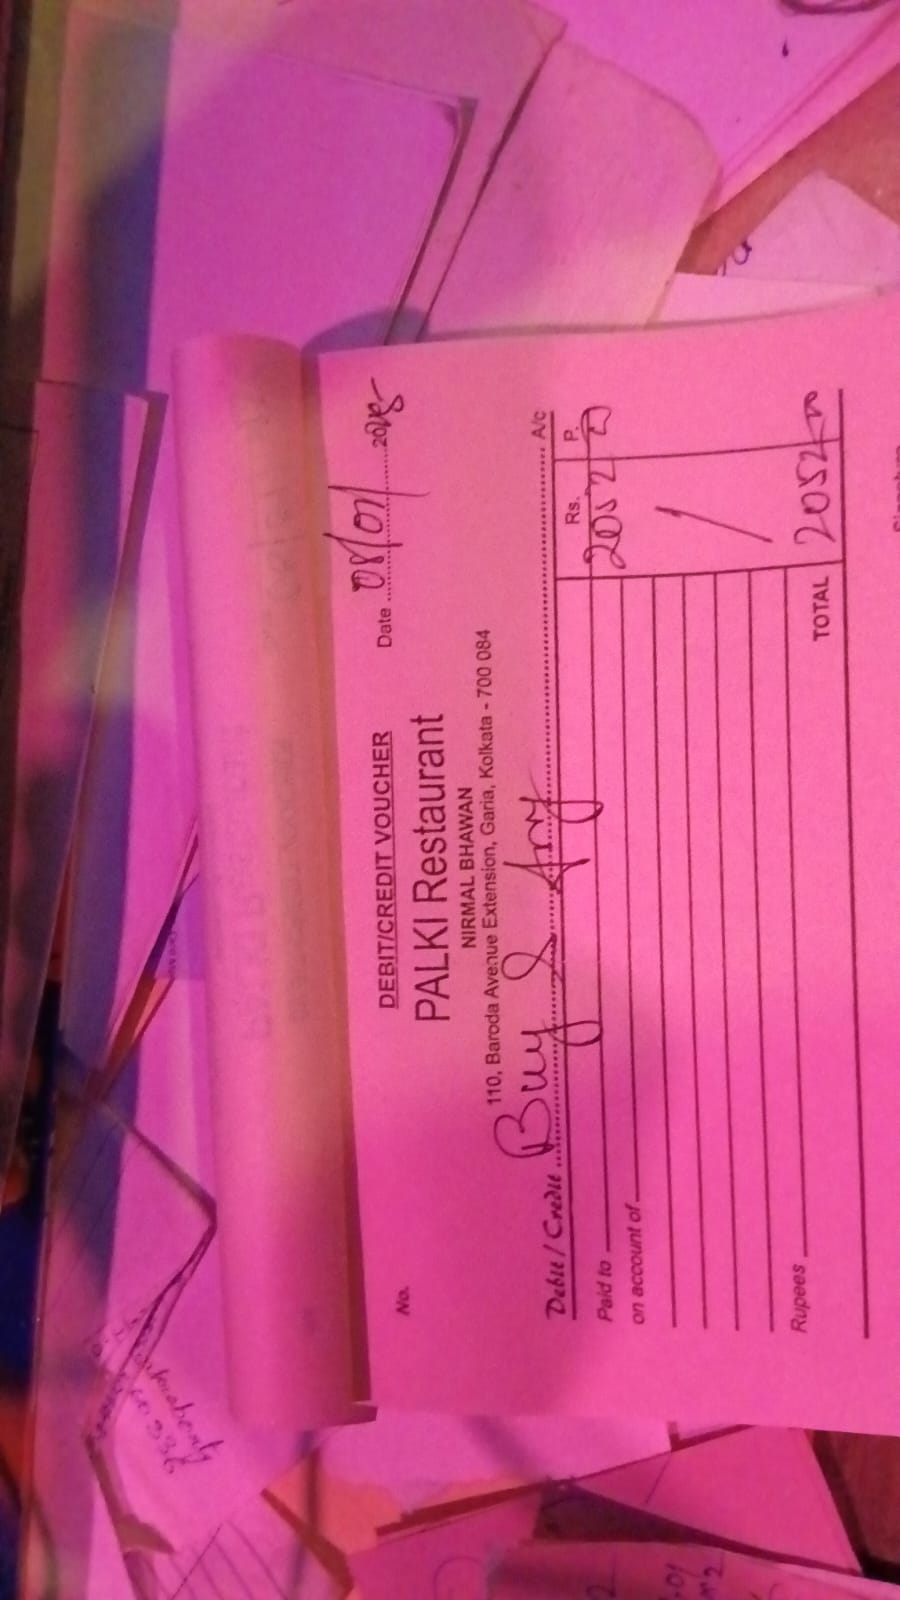 DEBIT/CREDIT VOUCHER
No.
Date 08/01/2025
PALKI Restaurant
NIRMAL BHAWAN
110, Baroda Avenue Extension, Garia, Kolkata - 700 084
Debit / Credit Buy & A/c
Rs. P.
Paid to 2052
on account of
Rupees
TOTAL 2052